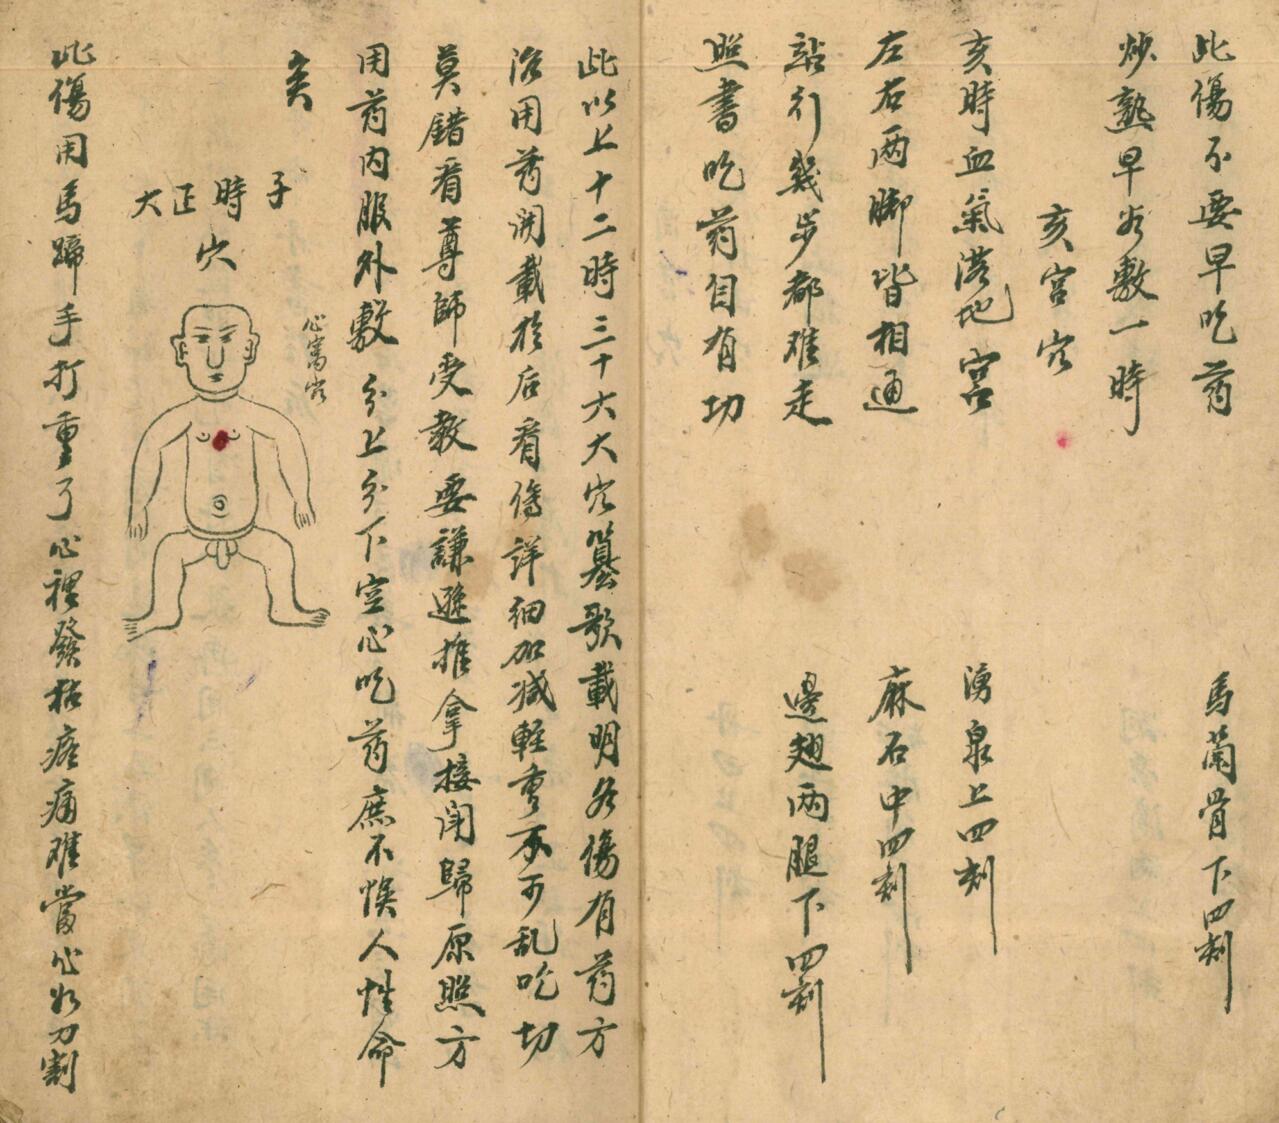 此傷不要早吃药 馬蘭骨下四刻
炒熟早谷敷一時
亥宫穴
亥時血氣落地宫 湧泉上四刻
左右两脚皆相通 麻石中四刻
站行幾步都难走 邊翅两腿下四刻
照書吃药自有功
此以上十二時三十六大穴纂歌載明各傷有药方
治用药開載於后看傷詳細加减軽重不可乱吃切
莫錯看尊師受教要謙遜推拿接闭歸原照方
用药内服外敷 分上分下空心吃药庶不悮人性命
亥
子時正大
穴
心窩穴
此傷用馬蹄手打重了心裡發枯疼痛难當心如刀割